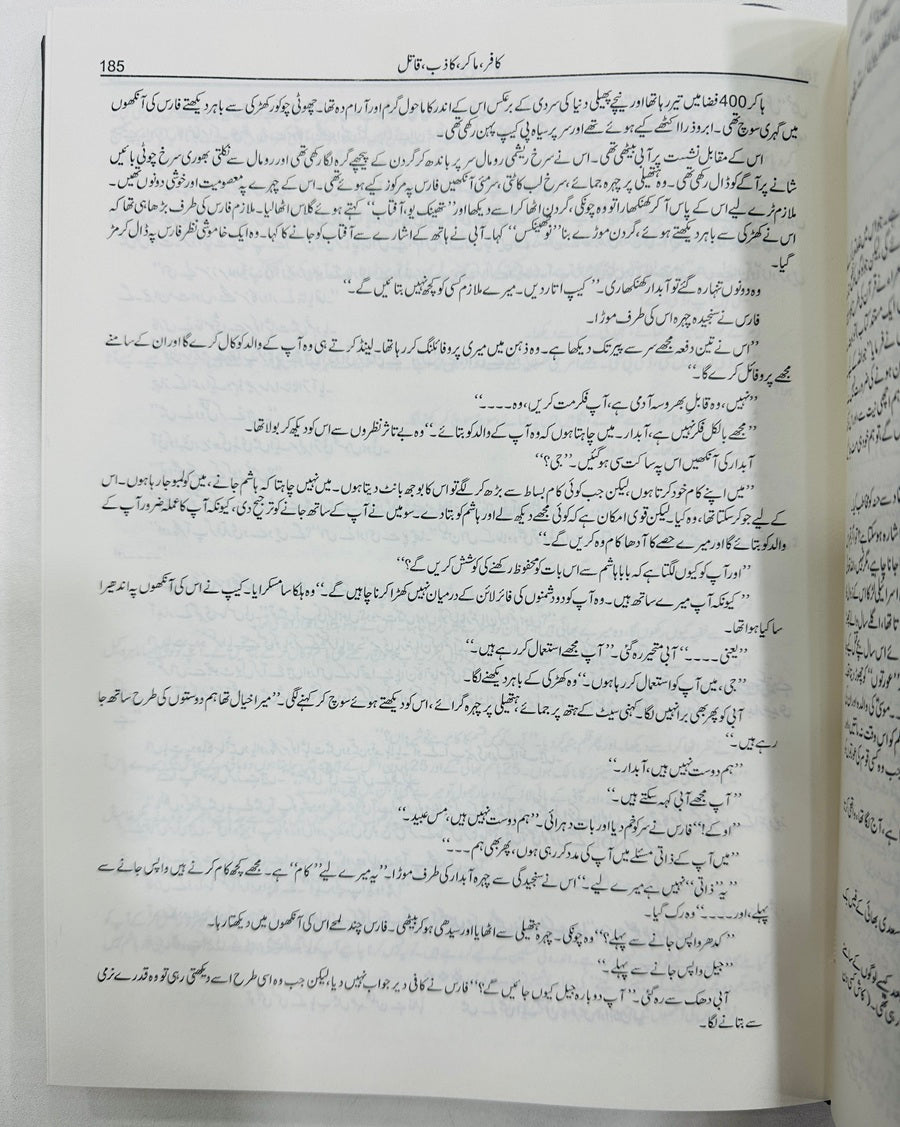 185
کافر، ماکر، کاذب، قاتل
ہاکر 400 فضا میں تیر رہا تھا اور نیچے پھیلی دنیا کی سردی کے برعکس اس کے اندر کا ماحول گرم اور آرام دہ تھا۔ چھوٹی چوکور کھڑکی سے باہر دیکھتے فارس کی آنکھوں
میں گہری سوچ تھی۔ ابرو ذرا اکٹھے کیے ہوئے تھے اور سر پر سیاہ پی کیپ پہن رکھی تھی۔
اس کے مقابل نشست پر آبی بیٹھی تھی۔ اس نے سرخ ریشمی رومال سر پر باندھ کر گردن کے پیچھے گرہ لگا رکھی تھی اور رومال سے نکلتی بھوری سرخ چوٹی بائیں
شانے پر آگے کو ڈال رکھی تھی۔ وہ ہتھیلی پر چہرہ جمائے، سرخ لب کاٹتی، سرمئی آنکھیں فارس پہ مرکوز کیے ہوئے تھی۔ اس کے چہرے پہ معصومیت اور خوشی دونوں تھیں۔
ملازم ٹرے لیے اس کے پاس آ کر کھنکھارا تو وہ چونکی، گردن اٹھا کر اسے دیکھا اور ”تھینک یو، آفتاب“ کہتے ہوئے گلاس اٹھا لیا۔ ملازم فارس کی طرف بڑھا ہی تھا کہ
اس نے کھڑکی سے باہر دیکھتے ہوئے، گردن موڑے بنا ”نو تھینکس“ کہا۔ آبی نے ہاتھ کے اشارے سے آفتاب کو جانے کا کہا۔ وہ ایک خاموشی نظر فارس پہ ڈال کر مڑ
گیا۔
وہ دونوں تنہا رہ گئے تو آبدار کھنکھاری۔ ”کیپ اتار دیں۔ میرے ملازم کسی کو کچھ نہیں بتائیں گے۔“
فارس نے سنجیدہ چہرہ اس کی طرف موڑا۔
”اس نے تین دفعہ مجھے سر سے پیر تک دیکھا ہے۔ وہ ذہن میں میری پروفائلنگ کر رہا تھا۔ لینڈ کرتے ہی وہ آپ کے والد کو کال کرے گا اور ان کے سامنے
مجھے پروفائل کرے گا۔“
”نہیں، وہ قابل بھروسہ آدمی ہے، آپ فکر مت کریں، وہ ۔۔۔۔“
”مجھے بالکل فکر نہیں ہے، آبدار۔ میں چاہتا ہوں کہ وہ آپ کے والد کو بتائے۔“ وہ بے تاثر نظروں سے اس کو دیکھ کر بولا تھا۔
آبدار کی آنکھیں اس پہ ساکت سی ہو گئیں۔ ”جی؟“
”میں اپنے کام خود کرتا ہوں، لیکن جب کوئی کام بساط سے بڑھ کر لگے تو اس کا بوجھ بانٹ دیتا ہوں۔ میں نہیں چاہتا کہ ہاشم جانے، میں کولمبو جا رہا ہوں۔ اس
کے لیے جو کر سکتا تھا، وہ کیا۔ لیکن قوی امکان ہے کہ کوئی مجھے دیکھ لے اور ہاشم کو بتا دے۔ سو میں نے آپ کے ساتھ جانے کو ترجیح دی، کیونکہ آپ کا عملہ ضرور آپ کے
والد کو بتائے گا اور میرے حصے کا آدھا کام وہ کریں گے۔“
”اور آپ کو کیوں لگتا ہے کہ بابا ہاشم سے اس بات کو محفوظ رکھنے کی کوشش کریں گے؟“
”کیونکہ آپ میرے ساتھ ہیں۔ وہ آپ کو دو دشمنوں کی فائر لائن کے درمیان نہیں کھڑا کرنا چاہیں گے۔“ وہ ہلکا سا مسکرایا۔ کیپ نے اس کی آنکھوں پہ اندھیرا
سا کیا ہوا تھا۔
”یعنی ۔۔۔۔“ آبی متحیر رہ گئی۔ ”آپ مجھے استعمال کر رہے ہیں۔“
”جی، میں آپ کو استعمال کر رہا ہوں۔“ وہ کھڑکی کے باہر دیکھنے لگا۔
آبی کو پھر بھی برا نہیں لگا۔ کہنی سیٹ کے ہتھ پر جمائے، ہتھیلی پر چہرہ گرائے، اس کو دیکھتے ہوئے سوچ کر کہنے لگی۔ ”میرا خیال تھا ہم دوستوں کی طرح ساتھ جا
رہے ہیں۔“
”ہم دوست نہیں ہیں، آبدار۔“
”آپ مجھے آبی کہہ سکتے ہیں۔“
”اوکے!“ فارس نے سر کو خم دیا اور بات دہرائی۔ ”ہم دوست نہیں ہیں، مس عبید۔“
”میں آپ کے ذاتی مسئلے میں آپ کی مدد کر رہی ہوں، پھر بھی ہم ۔۔۔“
”یہ ”ذاتی“ نہیں ہے میرے لیے۔“ اس نے سنجیدگی سے چہرہ آبدار کی طرف موڑا۔ ”یہ میرے لیے ”کام“ ہے۔ مجھے کچھ کام کرنے ہیں واپس جانے سے
پہلے، اور ۔۔۔۔“ وہ رک گیا۔
”کدھر واپس جانے سے پہلے؟“ وہ چونکی۔ چہرہ ہتھیلی سے اٹھایا اور سیدھی ہو کر بیٹھی۔ فارس چند لمحے اس کی آنکھوں میں دیکھتا رہا۔
”جیل واپس جانے سے پہلے۔“
آبی دھک سے رہ گئی۔ ”آپ دوبارہ جیل کیوں جائیں گے؟“ فارس نے کافی دیر جواب نہیں دیا، لیکن جب وہ اسی طرح اسے دیکھتی رہی تو وہ قدرے نرمی
سے بتانے لگا۔